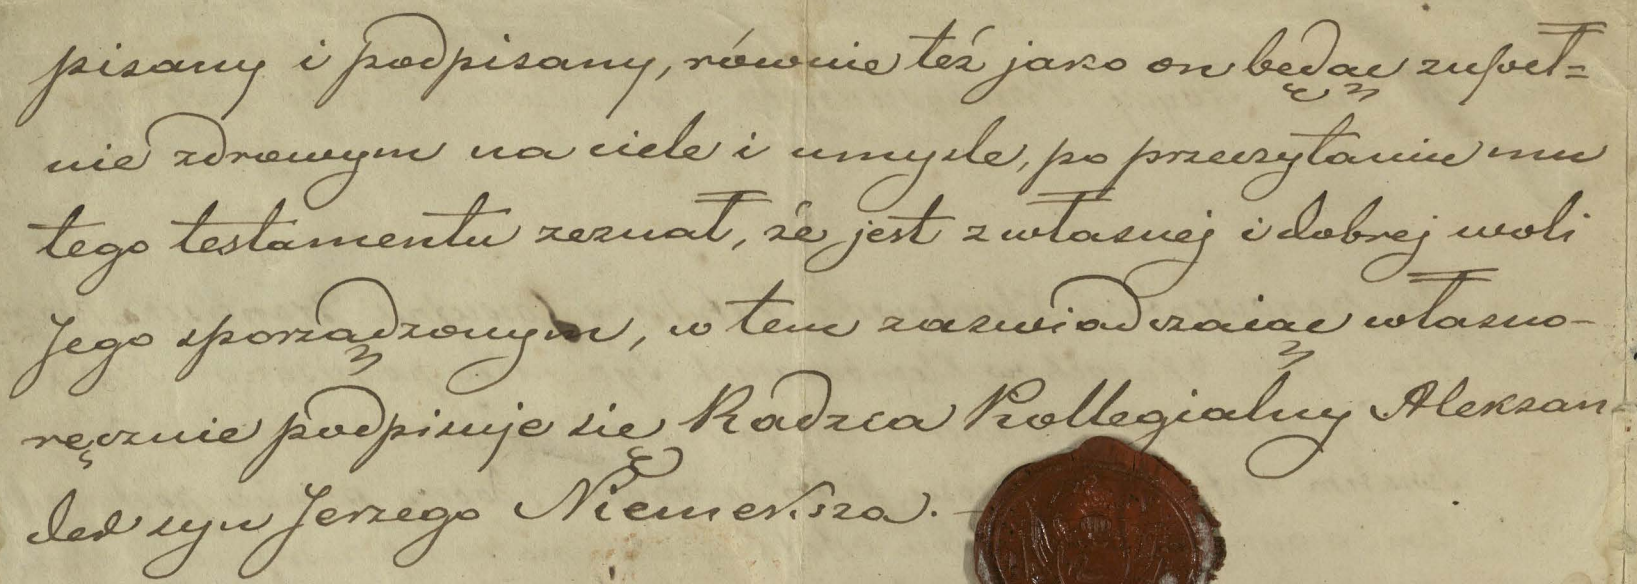 pisany i podpisany, równie też jako on będąc zupeł=
nie zdrowym na ciele i umyśle, po przeczytaniu mu
tego testamentu zeznał, że jest z własnej i dobrej woli
Jego sporządzonym, w tem zaswiadczaiąc własno-
ręcznie podpisuje się Radzca Kollegialny Aleksan=
der syn Jerzego